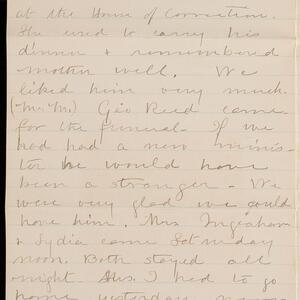 at the House of Correction.
She used to carry his
dinner & remembered
mother well. We
liked him very much.
(Mr. M.) Geo Reed came
for the funeral. If we
had had a new minis-
ter he would have
been a stranger - We
were very glad we could
have him. Mrs Ingraham
& Lydia came Saturday
noon. Both stayed all
night. Mrs. I had to go
home yesterday